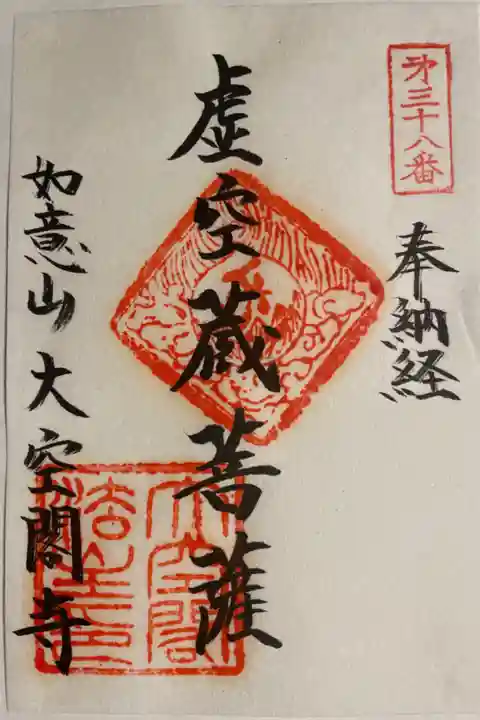 㐧三十八番
奉納経
虚空蔵菩薩
如意山 大空閣寺